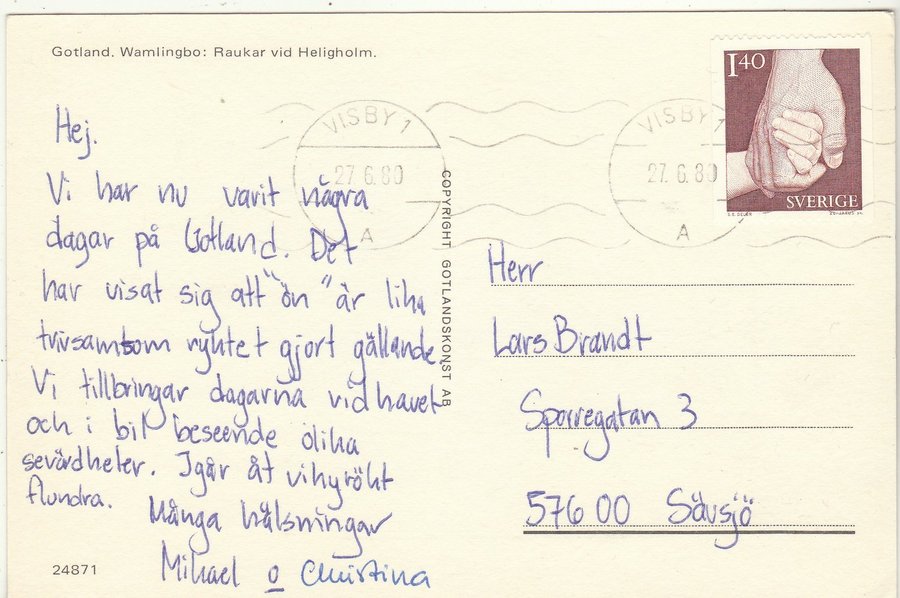 Gotland. Wamlingbo: Raukar vid Heligholm.
Hej.
Vi har nu varit några
dagar på Gotland. Det
har visat sig att "ön" är lika
trivsamt som ryktet gjort gällande.
Vi tillbringar dagarna vid havet
och i bil beseende olika
sevärdheter. Igår åt vi nyrökt
flundra.
Många hälsningar
Mikael o Christina
24871
COPYRIGHT GOTLANDSKONST AB
VISBY 1
27.6.80
A
VISBY 1
27.6.80
A
1.40
SVERIGE
Herr
Lars Brandt
Sporregatan 3
576 00 Sävsjö